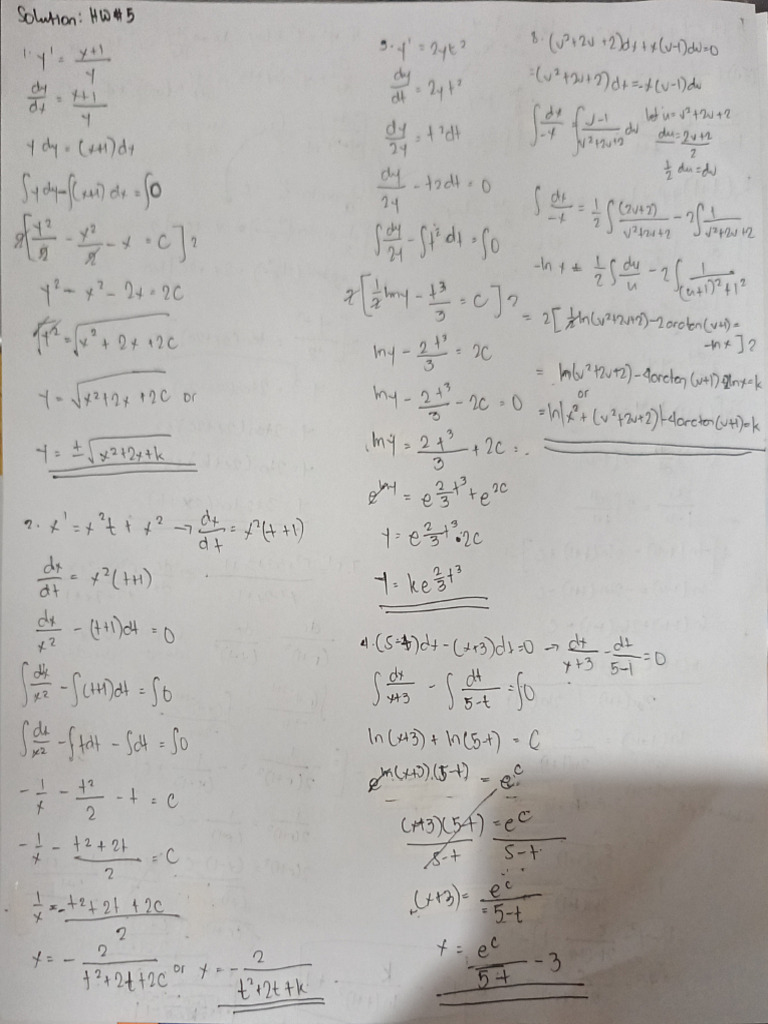 Solution: HW#5
1. y' = (x+1)/y
dy/dx = (x+1)/y
y dy = (x+1) dx
∫y dy - ∫(x+1) dx = ∫0
2[y²/2 - x²/2 - x = C]2
y² - x² - 2x = 2C
√y² = √(x² + 2x + 2C)
y = √(x² + 2x + 2C) or
y = ±√(x² + 2x + k)
2. x' = x²t + x² → dx/dt = x²(t+1)
dx/dt = x²(t+1)
dx/x² - (t+1)dt = 0
∫dx/x² - ∫(t+1)dt = ∫0
∫dx/x² - ∫tdt - ∫dt = ∫0
-1/x - t²/2 - t = C
-1/x - (t² + 2t)/2 = C
1/x = -(t² + 2t + 2C)/2
x = - 2/(t² + 2t + 2C) or x = - 2/(t² + 2t + k)
3. y' = 2yt²
dy/dt = 2yt²
dy/2y = t²dt
dy/2y - t2dt = 0
∫dy/2y - ∫t² dt = ∫0
2[1/2 lny - t³/3 = C]2
lny - 2t³/3 = 2C
lny - 2t³/3 - 2C = 0
lny = 2t³/3 + 2C
e^lny = e^(2/3 t³) + e^2C
y = e^(2/3 t³) • 2C
y = ke^(2/3 t³)
4. (5-t)dx - (x+3)dt = 0 → dx/(x+3) - dt/(5-t) = 0
∫dx/(x+3) - ∫dt/(5-t) = ∫0
ln(x+3) + ln(5-t) = C
e^ln(x+3)·(5-t) = e^C
(x+3)(5-t)/(5-t) = e^C/(5-t)
(x+3) = e^C/(5-t)
x = e^C/(5-t) - 3
8. (v²+2v+2)dx + x(v-1)dv = 0
= (v²+2v+2)dx = -x(v-1)dv
∫dx/-x = ∫(v-1)/(v²+2v+2) dv
let u = v²+2v+2
du = (2v+2)/2
1/2 du = dv
∫dx/-x = 1/2 ∫(2v+2)/(v²+2v+2) - 2∫1/(v²+2v+2)
-ln x = 1/2 ∫du/u - 2∫1/((u+1)²+1²)
= 2[1/2 ln(v²+2v+2) - 2arctan(v+1) = -lnx]2
= ln(v²+2v+2) - 4arctan(v+1) + 2lnx = k
or
= ln|x² + (v²+2v+2)| - 4arctan(v+1) = k